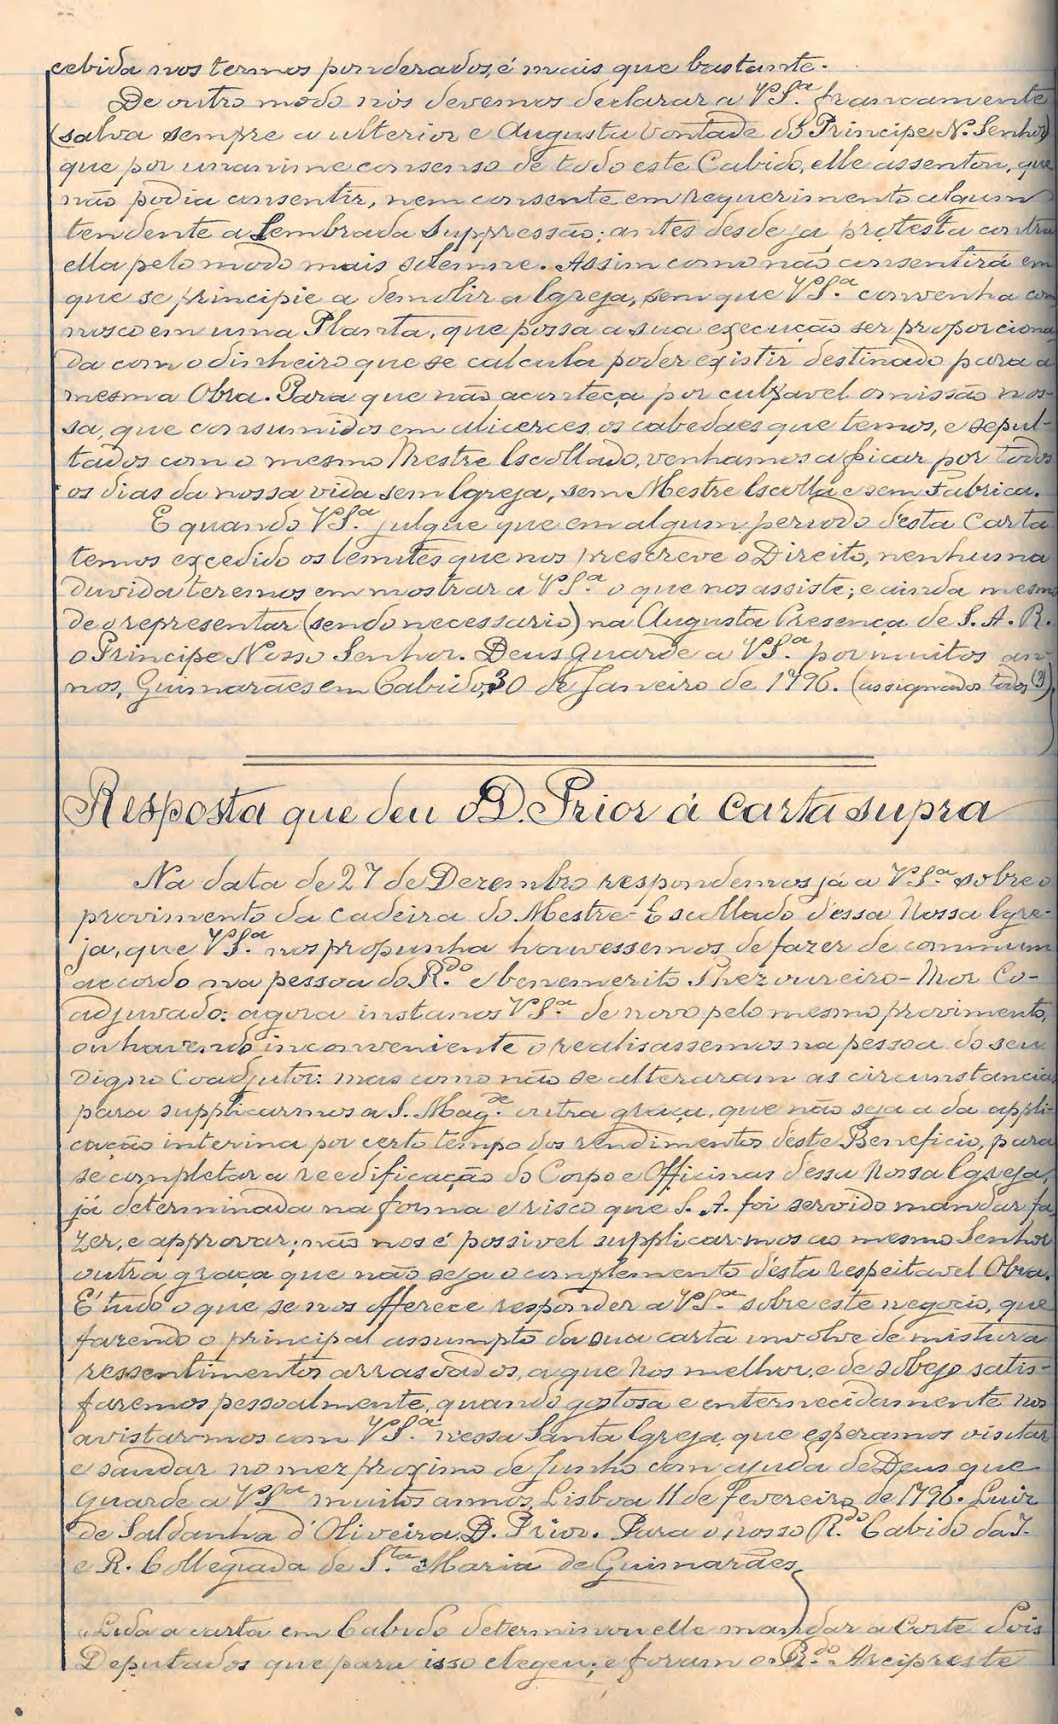 cebida nos termos ponderados, é mais que bastante.
De outro modo nós devemos declarar a V.S.ª francamente
(salva sempre a ulterior e Augusta vontade do Principe N. Senhor)
que por unanime consenso de todo este Cabido, elle assentou, que
não podia consentir, nem consente em requerimento algum
tendente a lembrada Suppressão; antes desde já, protesta contra
ella pelo modo mais solemne. Assim como não consentirá em
que se principie a demolir a Igreja, sem que V.S.ª convenha com
nosco em uma Planta, que possa a sua execução ser proporciona
da com o dinheiro que se calcula poder existir destinado para a
mesma Obra. Para que não aconteça por culpavel omissão nos-
sa, que consumidos em alicerces os cabedaes que temos, e sepul-
tados com o mesmo Mestre Escollado, venhamos a ficar por todos
os dias da nossa vida sem Igreja, sem Mestre Escolla e sem Fabrica.
E quando V.S.ª julgue que em algum periodo d'esta Carta
temos excedido os lemites que nos prescreve o Direito, nenhuma
duvida teremos em mostrar a V.S.ª o que nos assiste; e ainda mesmo
de o representar (sendo necessario) na Augusta Presença de S. A. R.
o Principe Nosso Senhor. Deus Guarde a V.S.ª por muitos an-
nos, Guimarães em Cabido, 30 de Janeiro de 1796. (assignados todos)
Resposta que deu o D. Prior á carta supra
Na data de 27 de Dezembro respondemos já a V.S.ª sobre o
provimento da cadeira do Mestre-Escollado d'essa Nossa Igre-
ja, que V.S.ª nos propunha houvessemos de fazer de commum
accordo na pessoa do R.do e benemerito Thezoureiro-Mor Co-
adjuvado: agora instanos V.S.ª de novo pelo mesmo provimento,
ou havendo inconveniente o realisassemos na pessoa do seu
digno Coadjutor: mas como não se alteraram as circunstancias
para supplicarmos a S. Mag.de outra graça, que não seja a da appli-
cação interina por certo tempo dos rendimentos d'este Beneficio, para
se completar a reedificação do Corpo e Officinas dessa Nossa Igreja,
já determinada na forma e risco que S. A. foi servido mandar fa
zer, e approvar; não nos é possivel supplicar-mos ao mesmo Senhor
outra graça que não seja o complemento d'esta respeitavel Obra.
É tudo o que se nos offerece responder a V.S.ª sobre este negocio, que
fazendo o principal assumpto da sua carta involve de mistura
ressentimentos arrasoados, a que nos melhor, e de sobejo satis-
faremos pessoalmente, quando gostosa e enternecidamente nos
avistar-mos com V.S.ª nessa Santa Igreja, que esperamos visitar
e saudar no mez proximo de Junho com ajuda de Deus que
Guarde a V.S.ª muitos annos, Lisboa 11 de Fevereiro de 1796. Luiz
de Saldanha d'Oliveira, D. Prior. Para o nosso R.do Cabido da I.
e R. Collegiada de S.ta Maria de Guimarães
Lida a carta em Cabido determinou elle mandar a Corte dois
Deputados que para isso elegeu; e foram o R.do Arcipreste